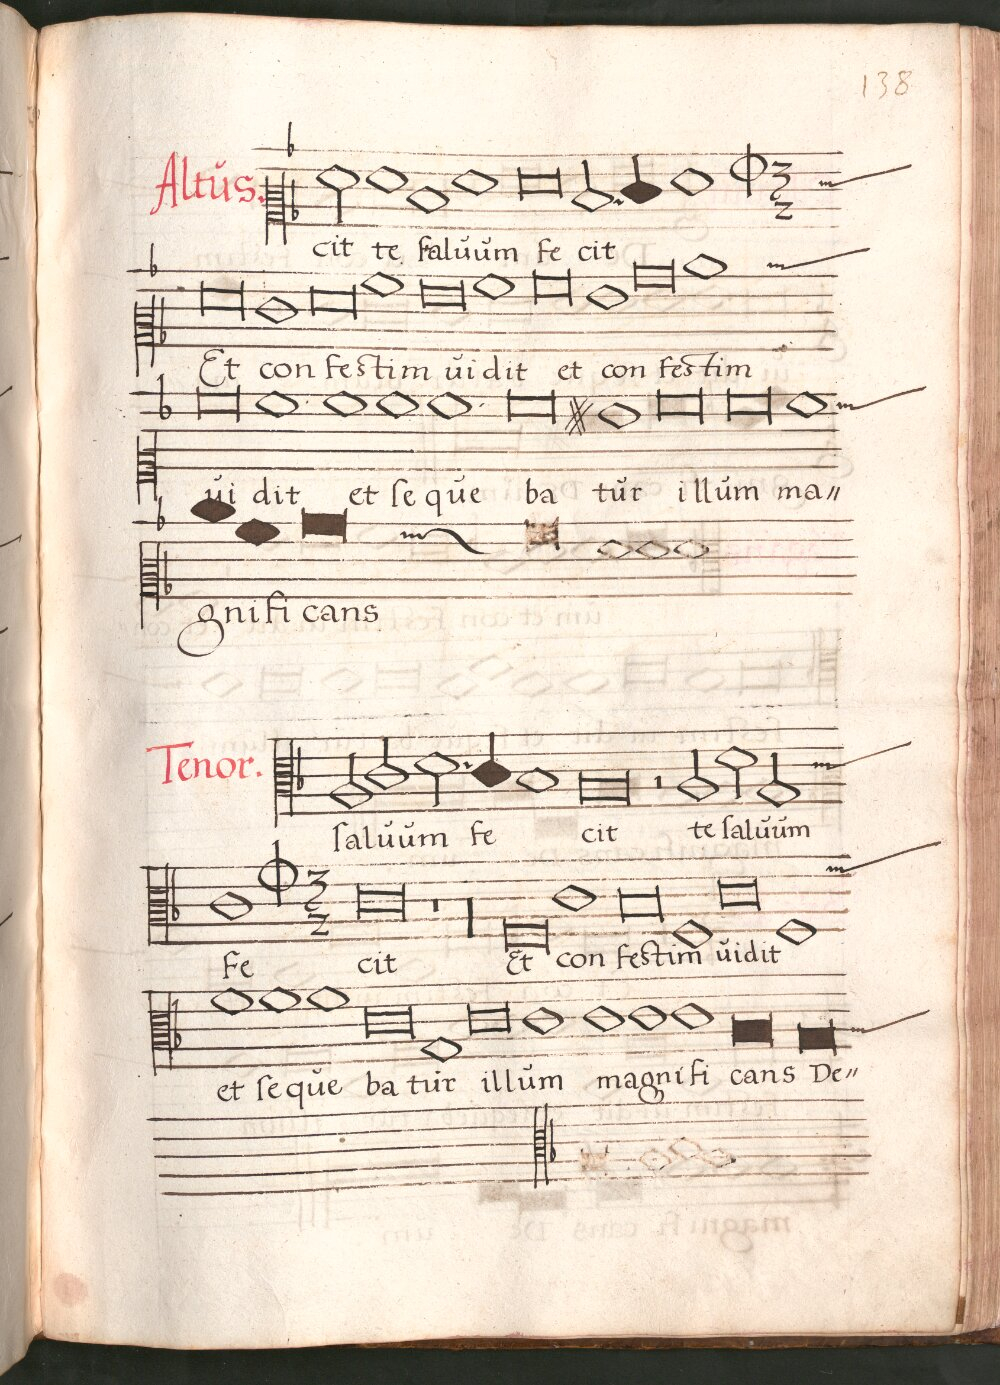 138
Altus.
cit te saluum fe cit
Et con festim uidit et con festim
ui dit et se que ba tur illum ma〃
gnifi cans
Tenor.
saluum fe cit te saluum
fe cit Et con festim uidit
et se que ba tur illum magnifi cans De〃